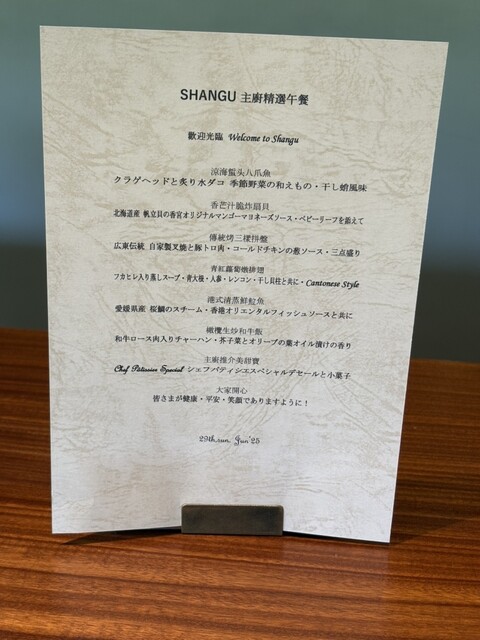 SHANGU 主廚精選午餐
歡迎光臨 Welcome to Shangu
涼海蜇头八爪魚
クラゲヘッドと炙り水ダコ 季節野菜の和えもの・干し蛤風味
香芒汁脆炸扇貝
北海道産 帆立貝の香宮オリジナルマンゴーマヨネーズソース・ベビーリーフを添えて
傳統烤三樣拼盤
広東伝統 自家製叉焼と豚トロ肉・コールドチキンの葱ソース・三点盛り
青紅蘿蔔燉排翅
フカヒレ入り蒸しスープ・青大根・人参・レンコン・干し貝柱と共に・Cantonese Style
港式清蒸鮮魚
愛媛県産 桜鯛のスチーム・香港オリエンタルフィッシュソースと共に
欖生炒和牛飯
和牛ロース肉入りチャーハン・芥子菜とオリーブの葉オイル漬けの香り
主廚推介美甜寶
Chef Pâtissier Special シェフパティシエスペシャルデセールと小菓子
大家開心
皆さまが健康・平安・笑顔でありますように!
29th.sun. Jun'25